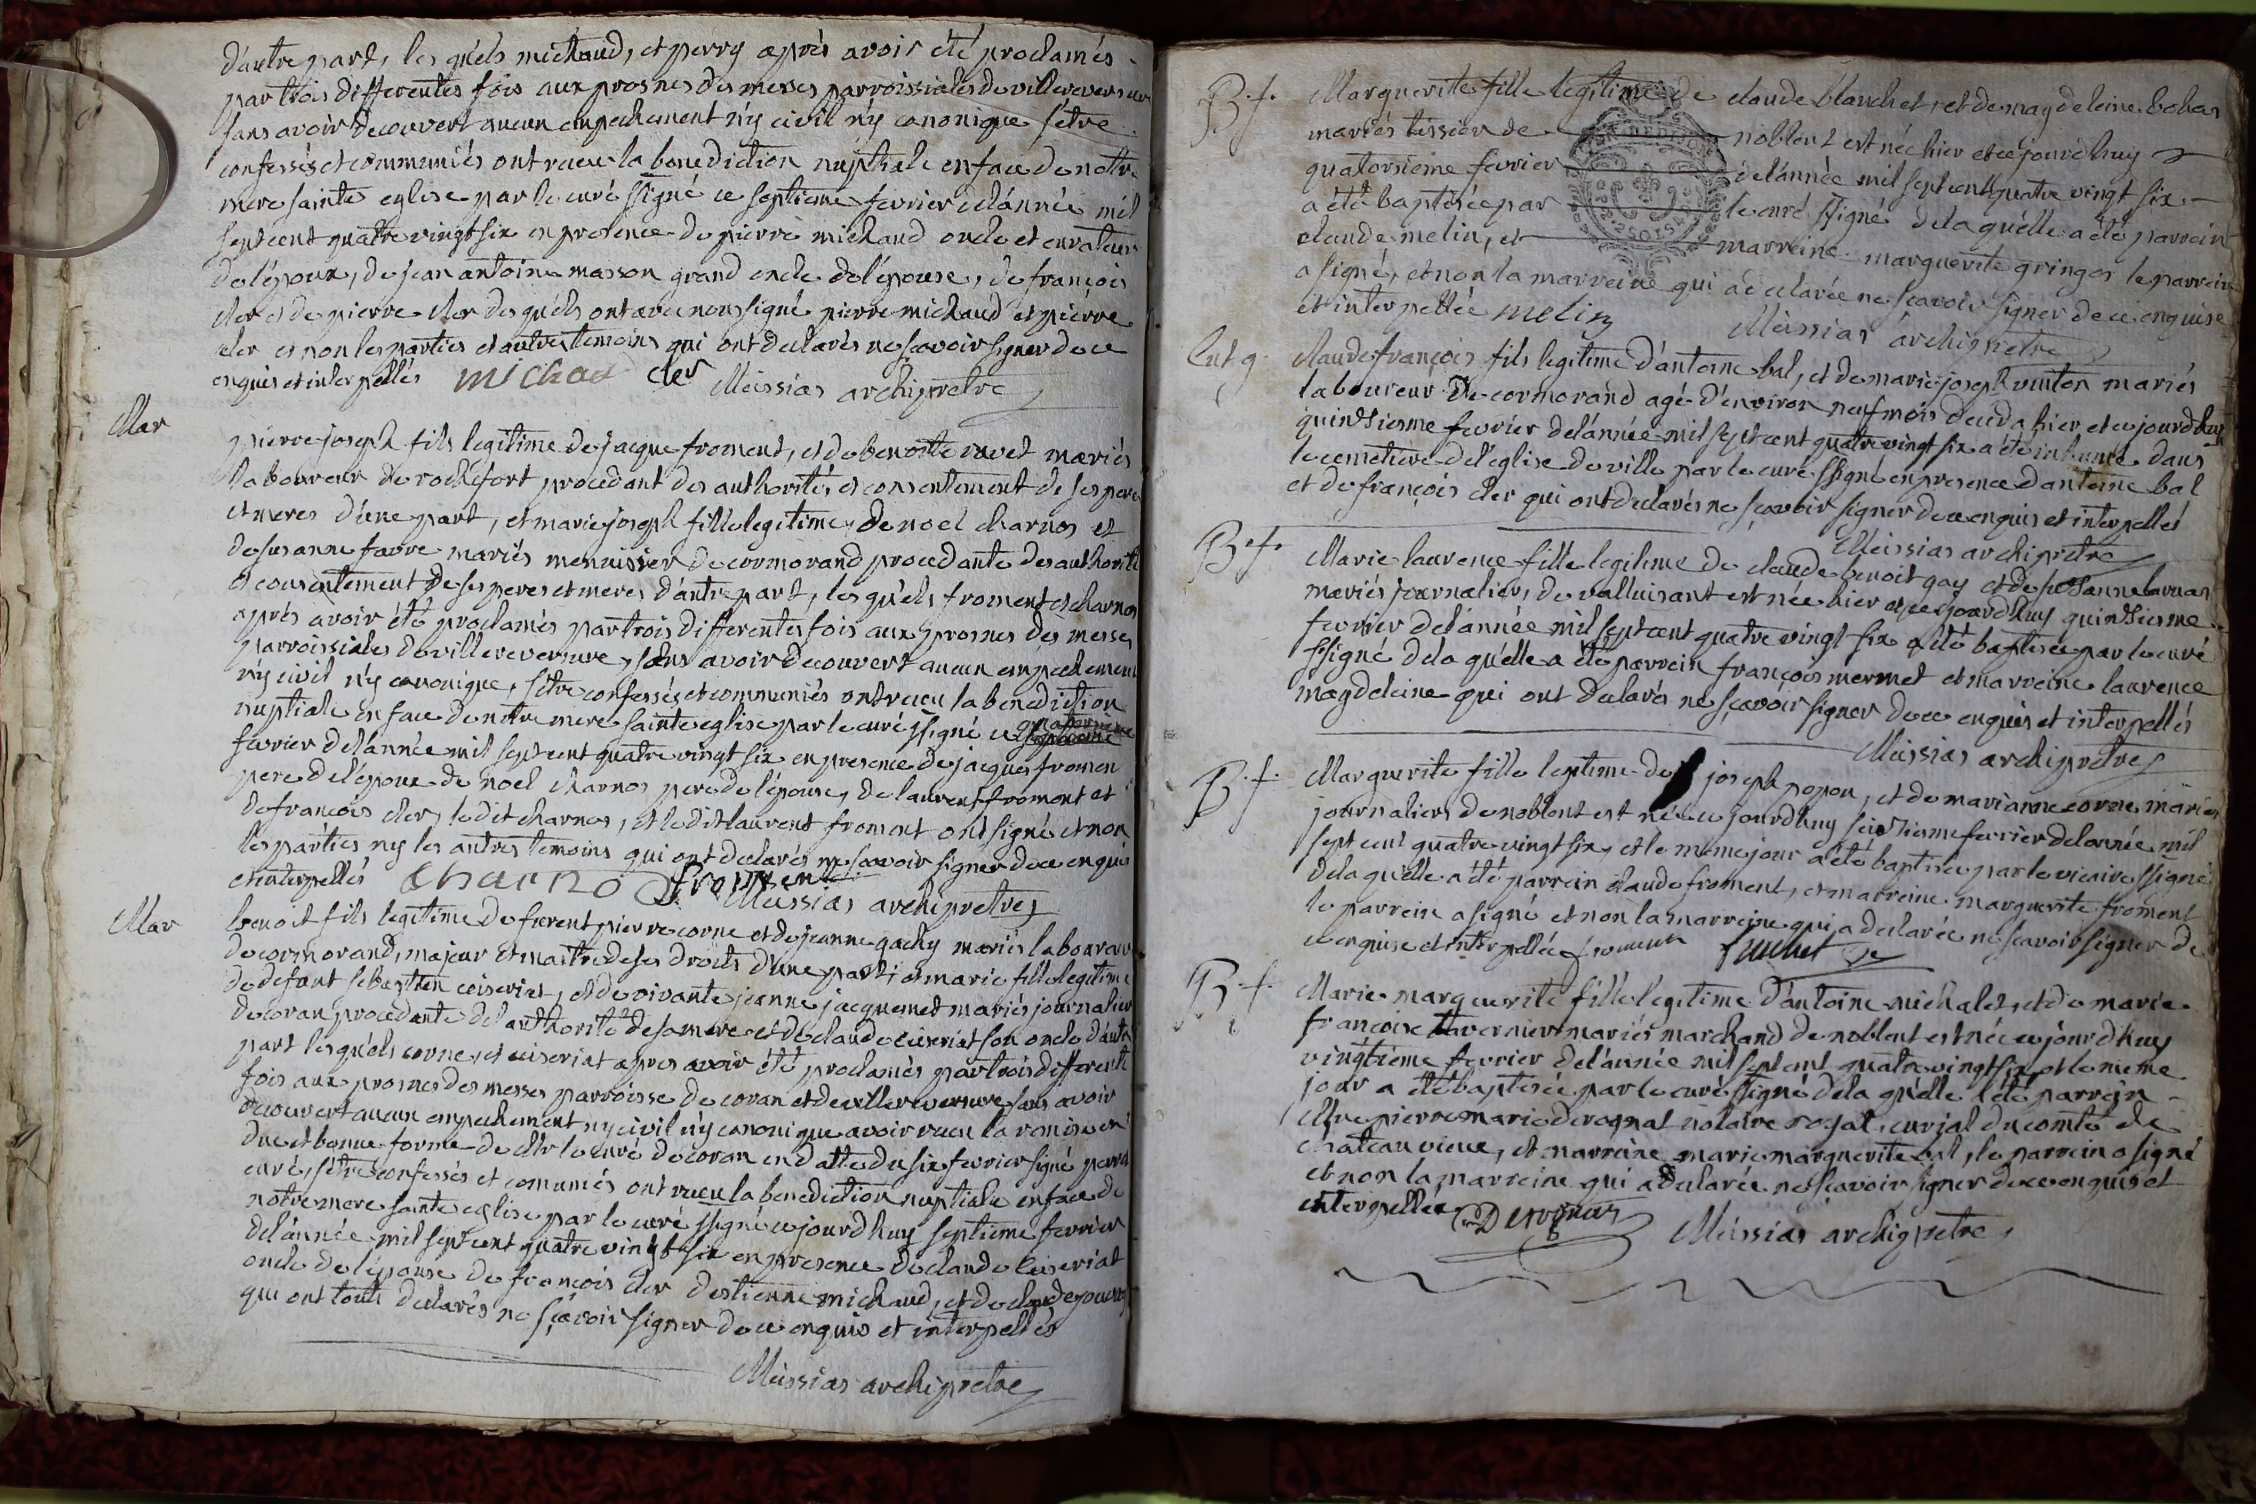 d'autre part, les quéls michaud, et perry aprés avoir été proclamés
par trois differentes fois aux prosnes des messes parroissiales de villereversure
sans avoir decouvert aucun empechement n'y civil n'y canonique s'etre
confessés et communiés ont recu la benediction nuptiale en face de notre
mere sainte eglise par le curé ssigné ce septieme fevrier de l'année mil
sept cent quatre vingt six en presence de pierre michaud oncle et curateur
de l'époux, de jean antoine masson grand oncle de l'épouse, de françois
cler et de pierre cler des quéls ont avec nous signé pierre michaud et piérre
cler et non les parties et autres temoins qui ont declarés ne sçavoir signer de ce
enquis et interpellés michau cler Méissias archiprêtre
Mar
pierre joseph fils legitime de jacque froment, et de benoite ravet mariés
laboureur de rochefort procedant des authorités et consentement de ses pere
et meres d'une part, et marie joseph fille legitime de noel charnos et
de susanne favre mariés menuisier de cormorand procedante des authorité
et consentement de ses peres et meres d'autre part, les quéls froment et charnos
aprés avoir été proclamés par trois differentes fois aux prosnes des messes
parroissiales de villereversure, sans avoir decouvert aucun empechement
n'y civil n'y canonique, s'étre confessés et communiés ont recu la benediction
nuptiale en face de notre mere sainte eglise par le curé ssigné ce quatorzieme
fevrier de l'année mil sept cent quatre vingt six en presence de jacques fromen
pere de l'époux de noel charnos pere de l'épouse, de laurent froment et
de françois cler, le dit charnos, et le dit laurent froment ont signé et non
les parties ny les autres temoins qui ont declarés ne sçavoir signer de ce enquis
et interpellés charno froment Méissias archiprêtre
Mar
benoit fils legitime de pierre corne et de jeanne gachy mariés laboureur
de cormorand, majeur et maitre de ses droits d'une part; et marie fille legitime
de defunt sebastien ceiseriat, et de vivante jeanne jacquemet mariés journalier
de coran procedante de l'authorité de sa mere et de claude ceiseriat son oncle d'autre
part les quéls corne, et ceiseriat apres avoir été proclamés par trois differente
fois aux prosnes des messes parroisse de coran et de villereversure sans avoir
decouvert aucun empechement ny civil n'y canonique avoir recu la remise en
due et bonne forme de Mr le curé de coran en datte du six fevrier signé perra
curé, s'étre confessés et comuniés ont recu la benediction nuptiale en face de
notre mere sainte eglise par le curé ssigné ce jourd'huy septieme fevrier
de l'année mil sept cent quatre vingt six en presence de claude ceiseriat
oncle de l'épouse de françois cler d'estienne michaud, et de claude
qui ont touts declarés ne sçavoir signer de ce enquis et interpellés
Méissias archiprêtre
B.f.
Marguerite fille legitime de claude blanchet, et de magdeleine bobas
mariés tissier de noblent est née hier et ce jourd'huy
quatorsieme fevrier de l'année mil sept cent quatre vingt six
a été baptisée par le curé ssigné de la quélle a été parrein
claude melin, et marreine marguerite gringos le parrein
a signé, et non la marreine qui a declarée ne sçavoir signer de ce enquise
et interpellée melin Méissias archiprêtre
Ent. g.
claude françois fils legitime d'antoine bal, et de marie joseph vuiton mariés
laboureur de cormorand agé d'environ neuf mois deceda hier et ce jourd'huy
quinsiesme fevrier de l'année mil sept cent quatre vingt six a été inhumé dans
le cemetiere de l'eglise de ville par le curé ssigné en presence d'antoine bal
et de françois cler qui ont declarés ne sçavoir signer de ce enquis et interpellés
Méissias archiprêtre
B.f.
Marie laurence fille legitime de claude benoit gay et de susanne
mariés journalier, de valluisant est née hier et ce jourd'huy quinsiesme
fevrier de l'année mil sept cent quatre vingt six a été baptisée par le curé
ssigné de la quélle a été parrein françois mermet et marreine laurence
magdeleine qui ont declarés ne sçavoir signer de ce enquis et interpellés
Méissias archiprêtre
B.f.
Marguerite fille legitime de joseph popon, et de marianne corne mariés
journaliers de noblent est née ce jourd'huy seisiesme fevrier de l'année mil
sept cent quatre vingt six, et le meme jour a été baptisée par le vicaire ssigné
de la quélle a été parrein claude froment, et marreine marguerite froment
le parrein a signé et non la marreine qui a declarée ne sçavoir signer de
ce enquise et interpellée froment
B.f.
Marie marguerite fille legitime d'antoine michalet, et de marie
françoise tavernier mariés marchand de noblent est née ce jourd'huy
vingtieme fevrier de l'année mil sept cent quatre vingt six et le meme
jour a été baptisée par le curé ssigné de la quélle a été parrein
Mre pierre marie derognat notaire royal, curial du comté de
chateau vieux, et marreine marie marguerite bal, le parrein a signé
et non la marreine qui a declarée ne sçavoir signer de ce enquise et
interpellée Derognat Méissias archiprêtre